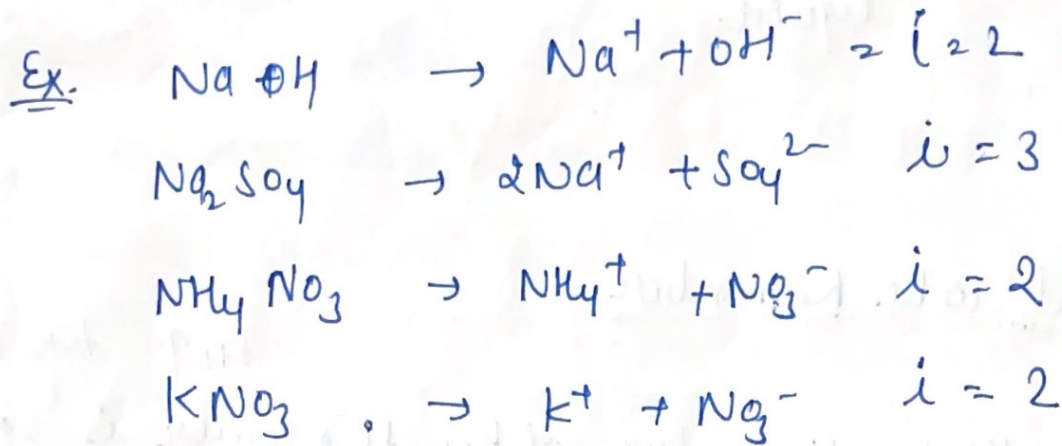 Ex. NaOH → Na⁺ + OH⁻ = i = 2
Na₂SO₄ → 2Na⁺ + SO₄²⁻ i = 3
NH₄NO₃ → NH₄⁺ + NO₃⁻ i = 2
KNO₃ → K⁺ + NO₃⁻ i = 2